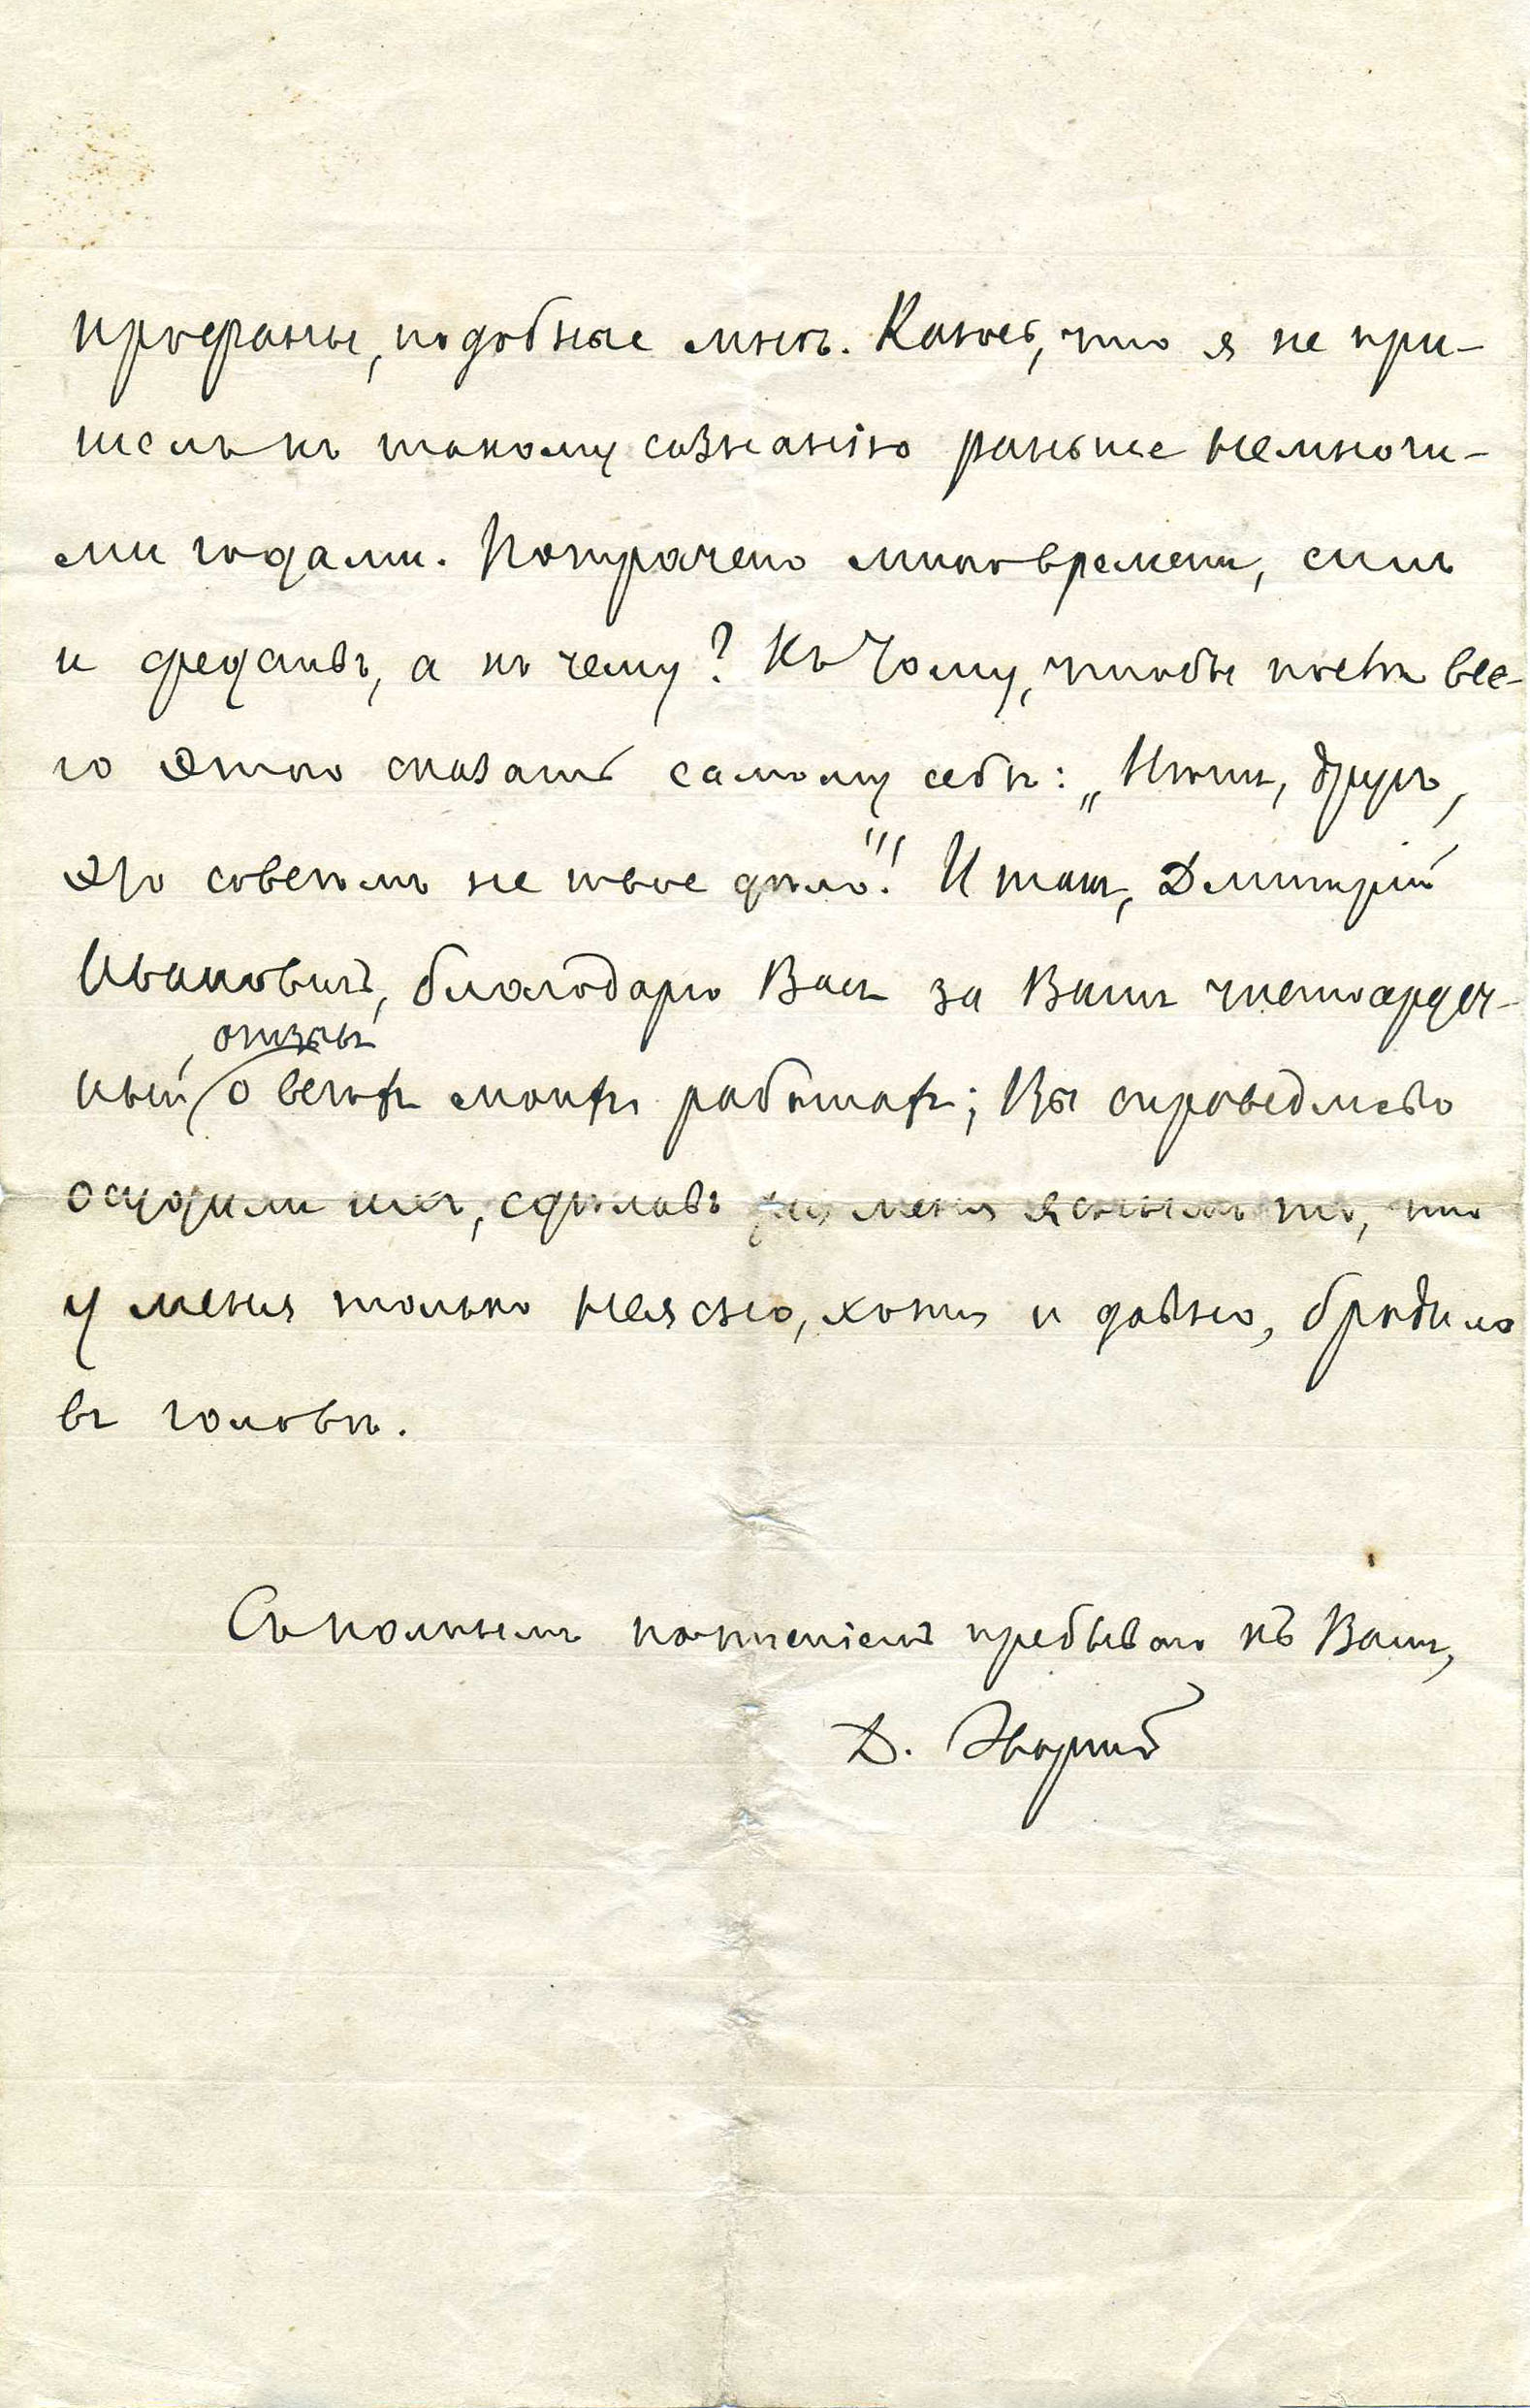 профаны, подобные мнѣ. Каюсь, что я не при-
шелъ къ такому сознанію раньше немноги-
ми годами. Потрачено много времени, силъ
и средствъ, а къ чему? Къ тому, чтобы послѣ все-
го этого сказать самому себѣ: „Нѣтъ, другъ,
это совсѣмъ не твое дѣло"! И такъ, Дмитрій
Ивановичъ, благодарю Васъ за Вашъ чистосердеч-
отзывъ
ный о всѣхъ моихъ работахъ; Вы справедливо
осудили ихъ, сдѣлавъ для меня яснымъ то, что
у меня только неясно, хотя и давно, бродило
въ головѣ.
Съ полнымъ почтеніемъ пребываю къ Вамъ,
Д. Эварниц